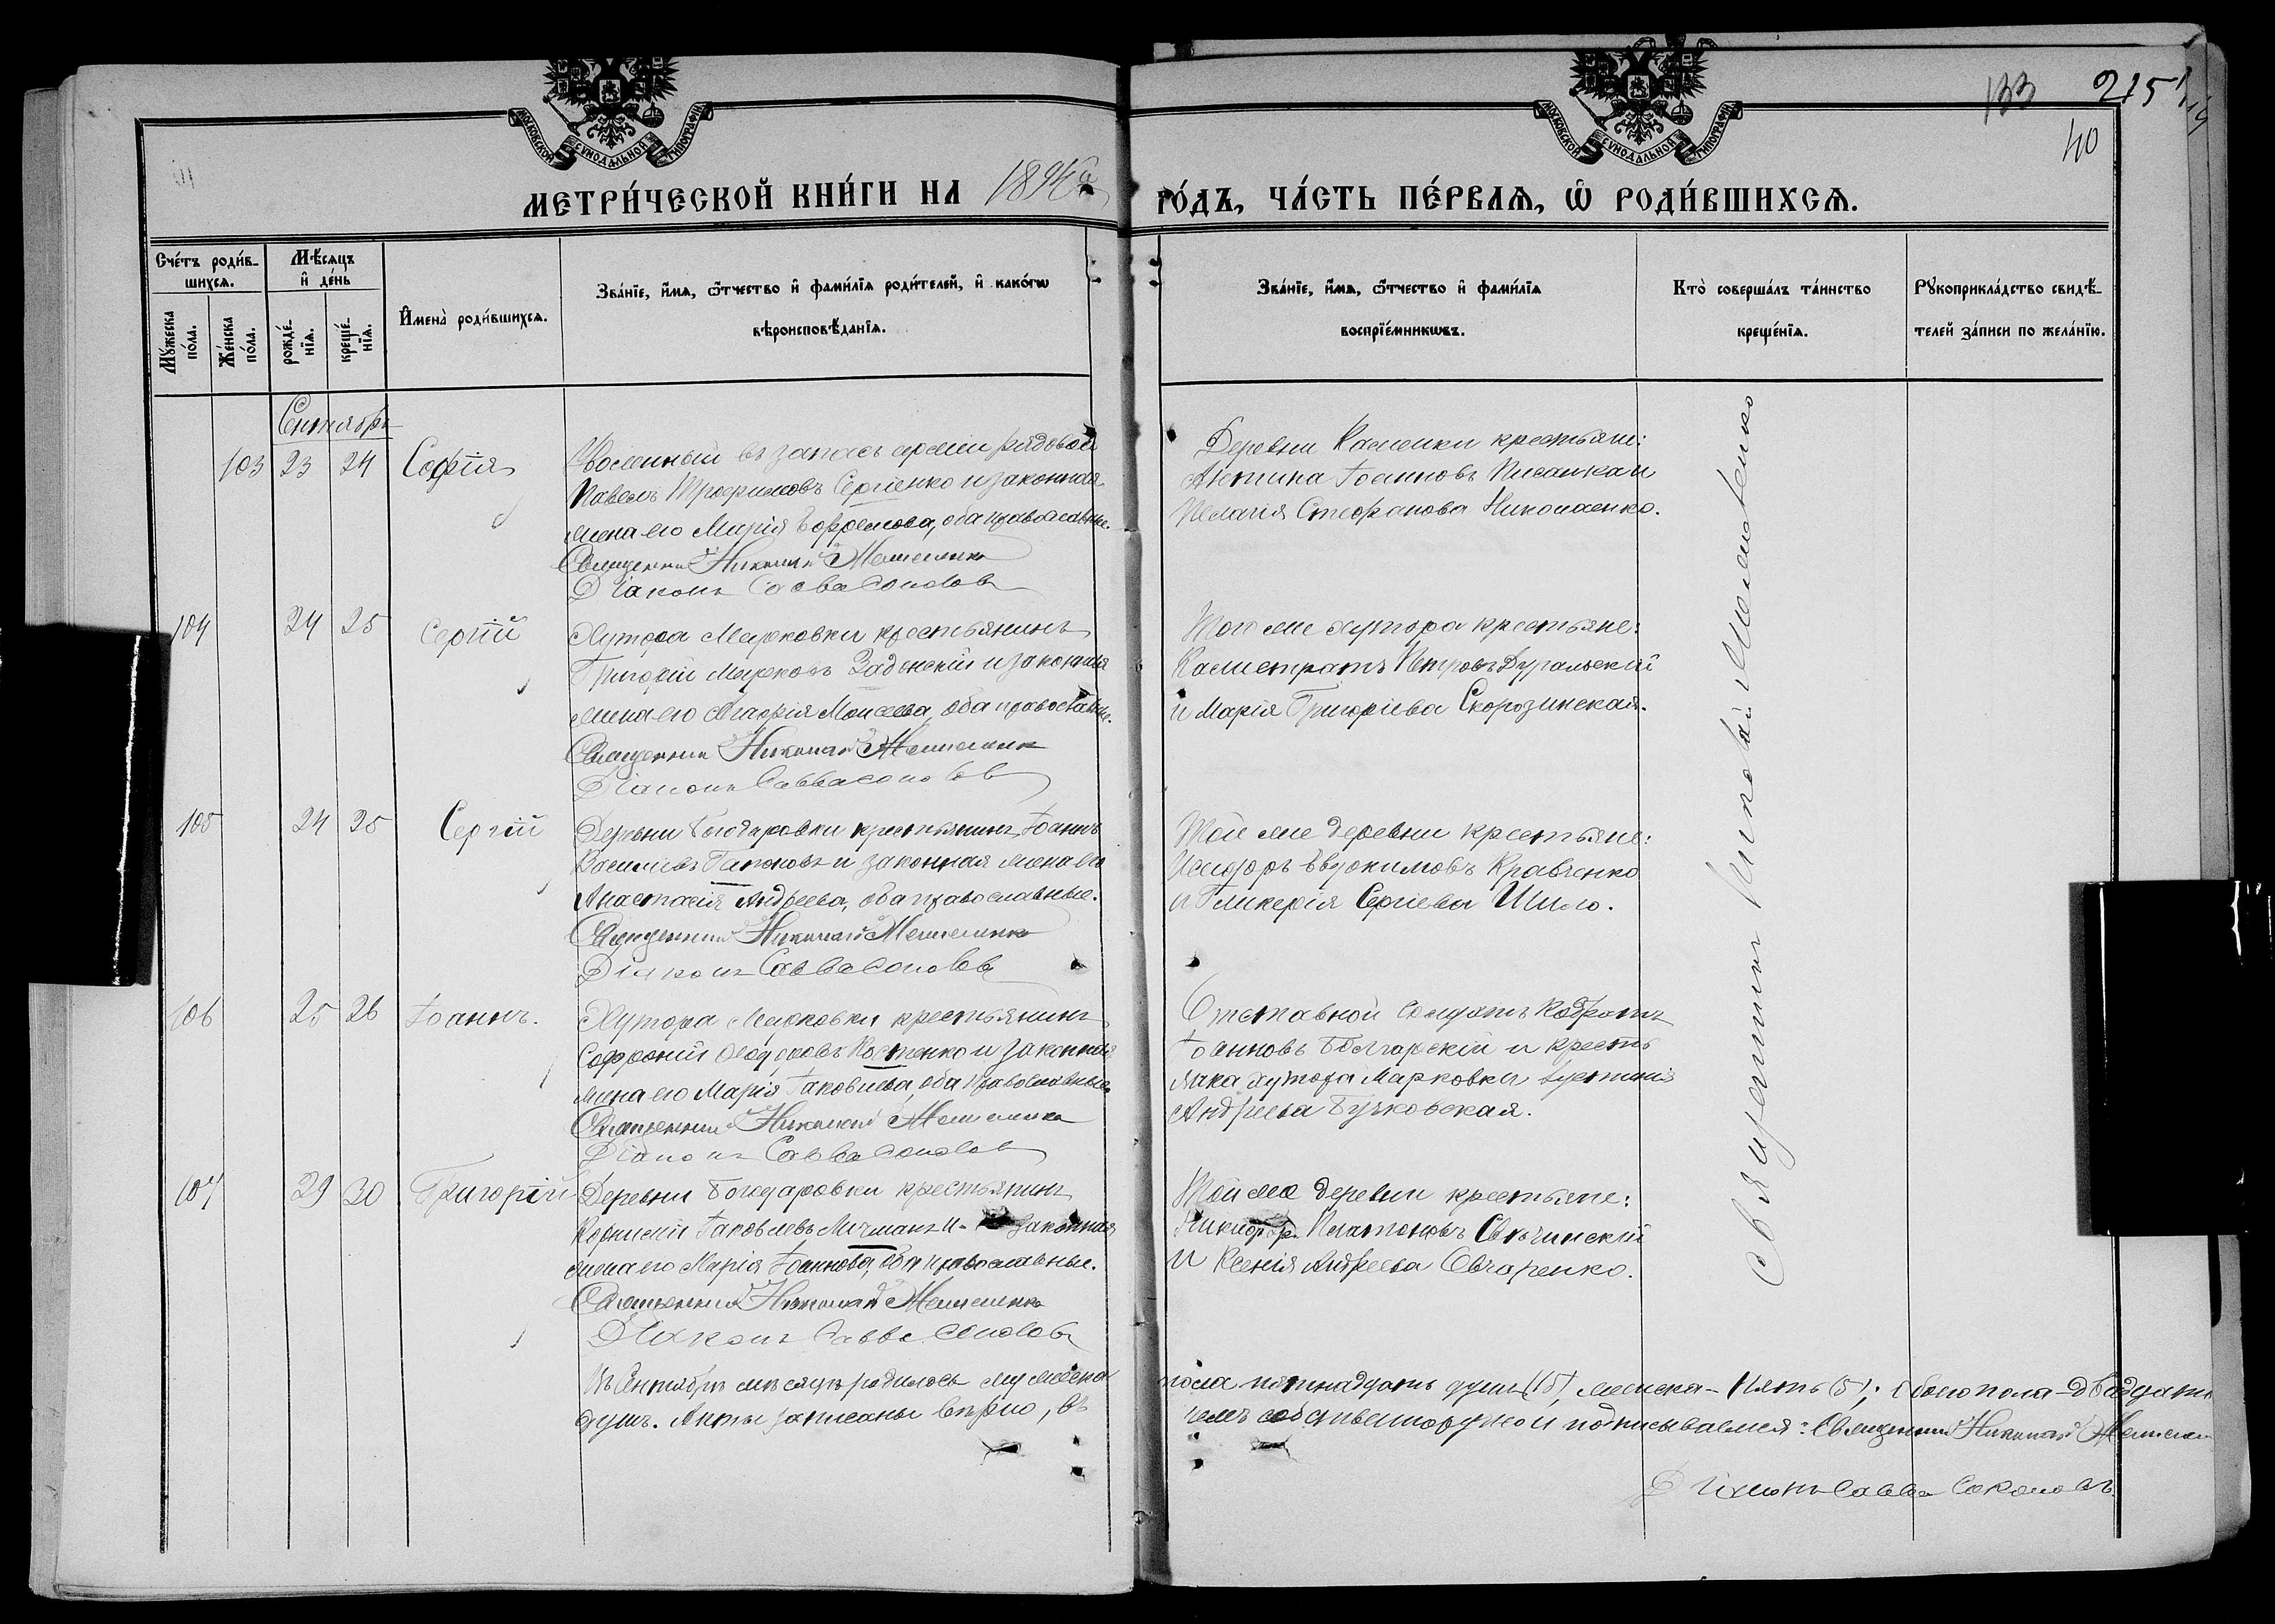 МОСКОВСКОЙ СѴНОДАЛЬНОЙ ТИПОГРАФІИ
МОСКОВСКОЙ СѴНОДАЛЬНОЙ ТИПОГРАФІИ
133 215
40
МЕТРИ́ЧЕСКОЙ КНИ́ГИ НА 189
ГО́ДЪ, ЧА́СТЬ ПЕ́РВАЯ, Ѡ РОДИ́ВШИХСЯ.
Сче́тъ роди́в-
шихся.
Мѣ́сяцъ
и де́нь
Мꙋ́жеска
по́ла.
Же́нска
по́ла.
рожде́-
нїя.
креще́-
нїя.
И҆мена̀ роди́вшихся.
Зва́нїе, и҆́мя, ѻ҆́тчество и҆ фами́лїя роди́телей, и҆ како́гѡ
вѣроисповѣ́данїя.
Зва́нїе, и҆́мя, ѻ҆́тчество и҆ фами́лїя
воспрїе́мникѡвъ.
Кто̀ соверша́лъ та́инство
креще́нїя.
Рꙋкоприкла́дство свидѣ́-
телей за́писи по жела́нїю.
Сентябрь
103 23 24 Софія
Уволенный въ запасъ арміи рядовой
Павелъ Трофимовъ Сергіенко и законная
жена его Марія Ефремова, оба православные.
Священникъ Николай
Діаконъ Савва Соколовъ
Деревни Каменки крестьяне:
Іоанновъ и
Пелагія Стефанова Николаенко.
104 24 25 Сергій
Хутора Марковки крестьянинъ
Григорій Марковъ Задонскій и законная
жена его Агафія Моисеева, оба православные.
Священникъ Николай
Діаконъ Савва Соколовъ
Того же хутора крестьяне:
Калистратъ Петровъ
и Марія Григоріева Скорозинская.
105 24 25 Сергій
Деревни Бондаровки крестьянинъ Іоаннъ
Васильевъ Гапоновъ и законная жена его
Анастасія Андреева, оба православные.
Священникъ Николай
Діаконъ Савва Соколовъ
Той же деревни крестьяне:
Исидоръ Евдокимовъ Кравченко
и Гликерія Сергіева Шило.
106 25 26 Іоаннъ.
Хутора Марковки крестьянинъ
Софроній Ѳеодоровъ Костенко и законная
жена его Марія Іаковлева, оба православные.
Священникъ Николай
Діаконъ Савва Соколовъ
Отставной солдатъ Кодратъ
Іоанновъ Болгарскій и кресть
янка хутора Марковки Іустинія
Андреева Бучковская.
107 29 30 Григорій
Деревни Бондаровки крестьянинъ
Корнилій Іаковлевъ Личманъ и законная
жена его Марія Іоаннова, оба православные.
Священникъ Николай
Діаконъ Савва Соколовъ
Той же деревни крестьяне:
Никифоръ Платоновъ Свѣчинскій
и Ксенія Андреева Овчаренко.
Священникъ Николай
Въ Сентябрѣ мѣсяцѣ родилось мужеска пола пятнадцать душъ (15), женска - пять (5); обоего пола - двадцать
душъ. Акты записаны вѣрно, въ чемъ собственноручно и подписываемся: Священникъ Николай
Діаконъ Савва Соколовъ.